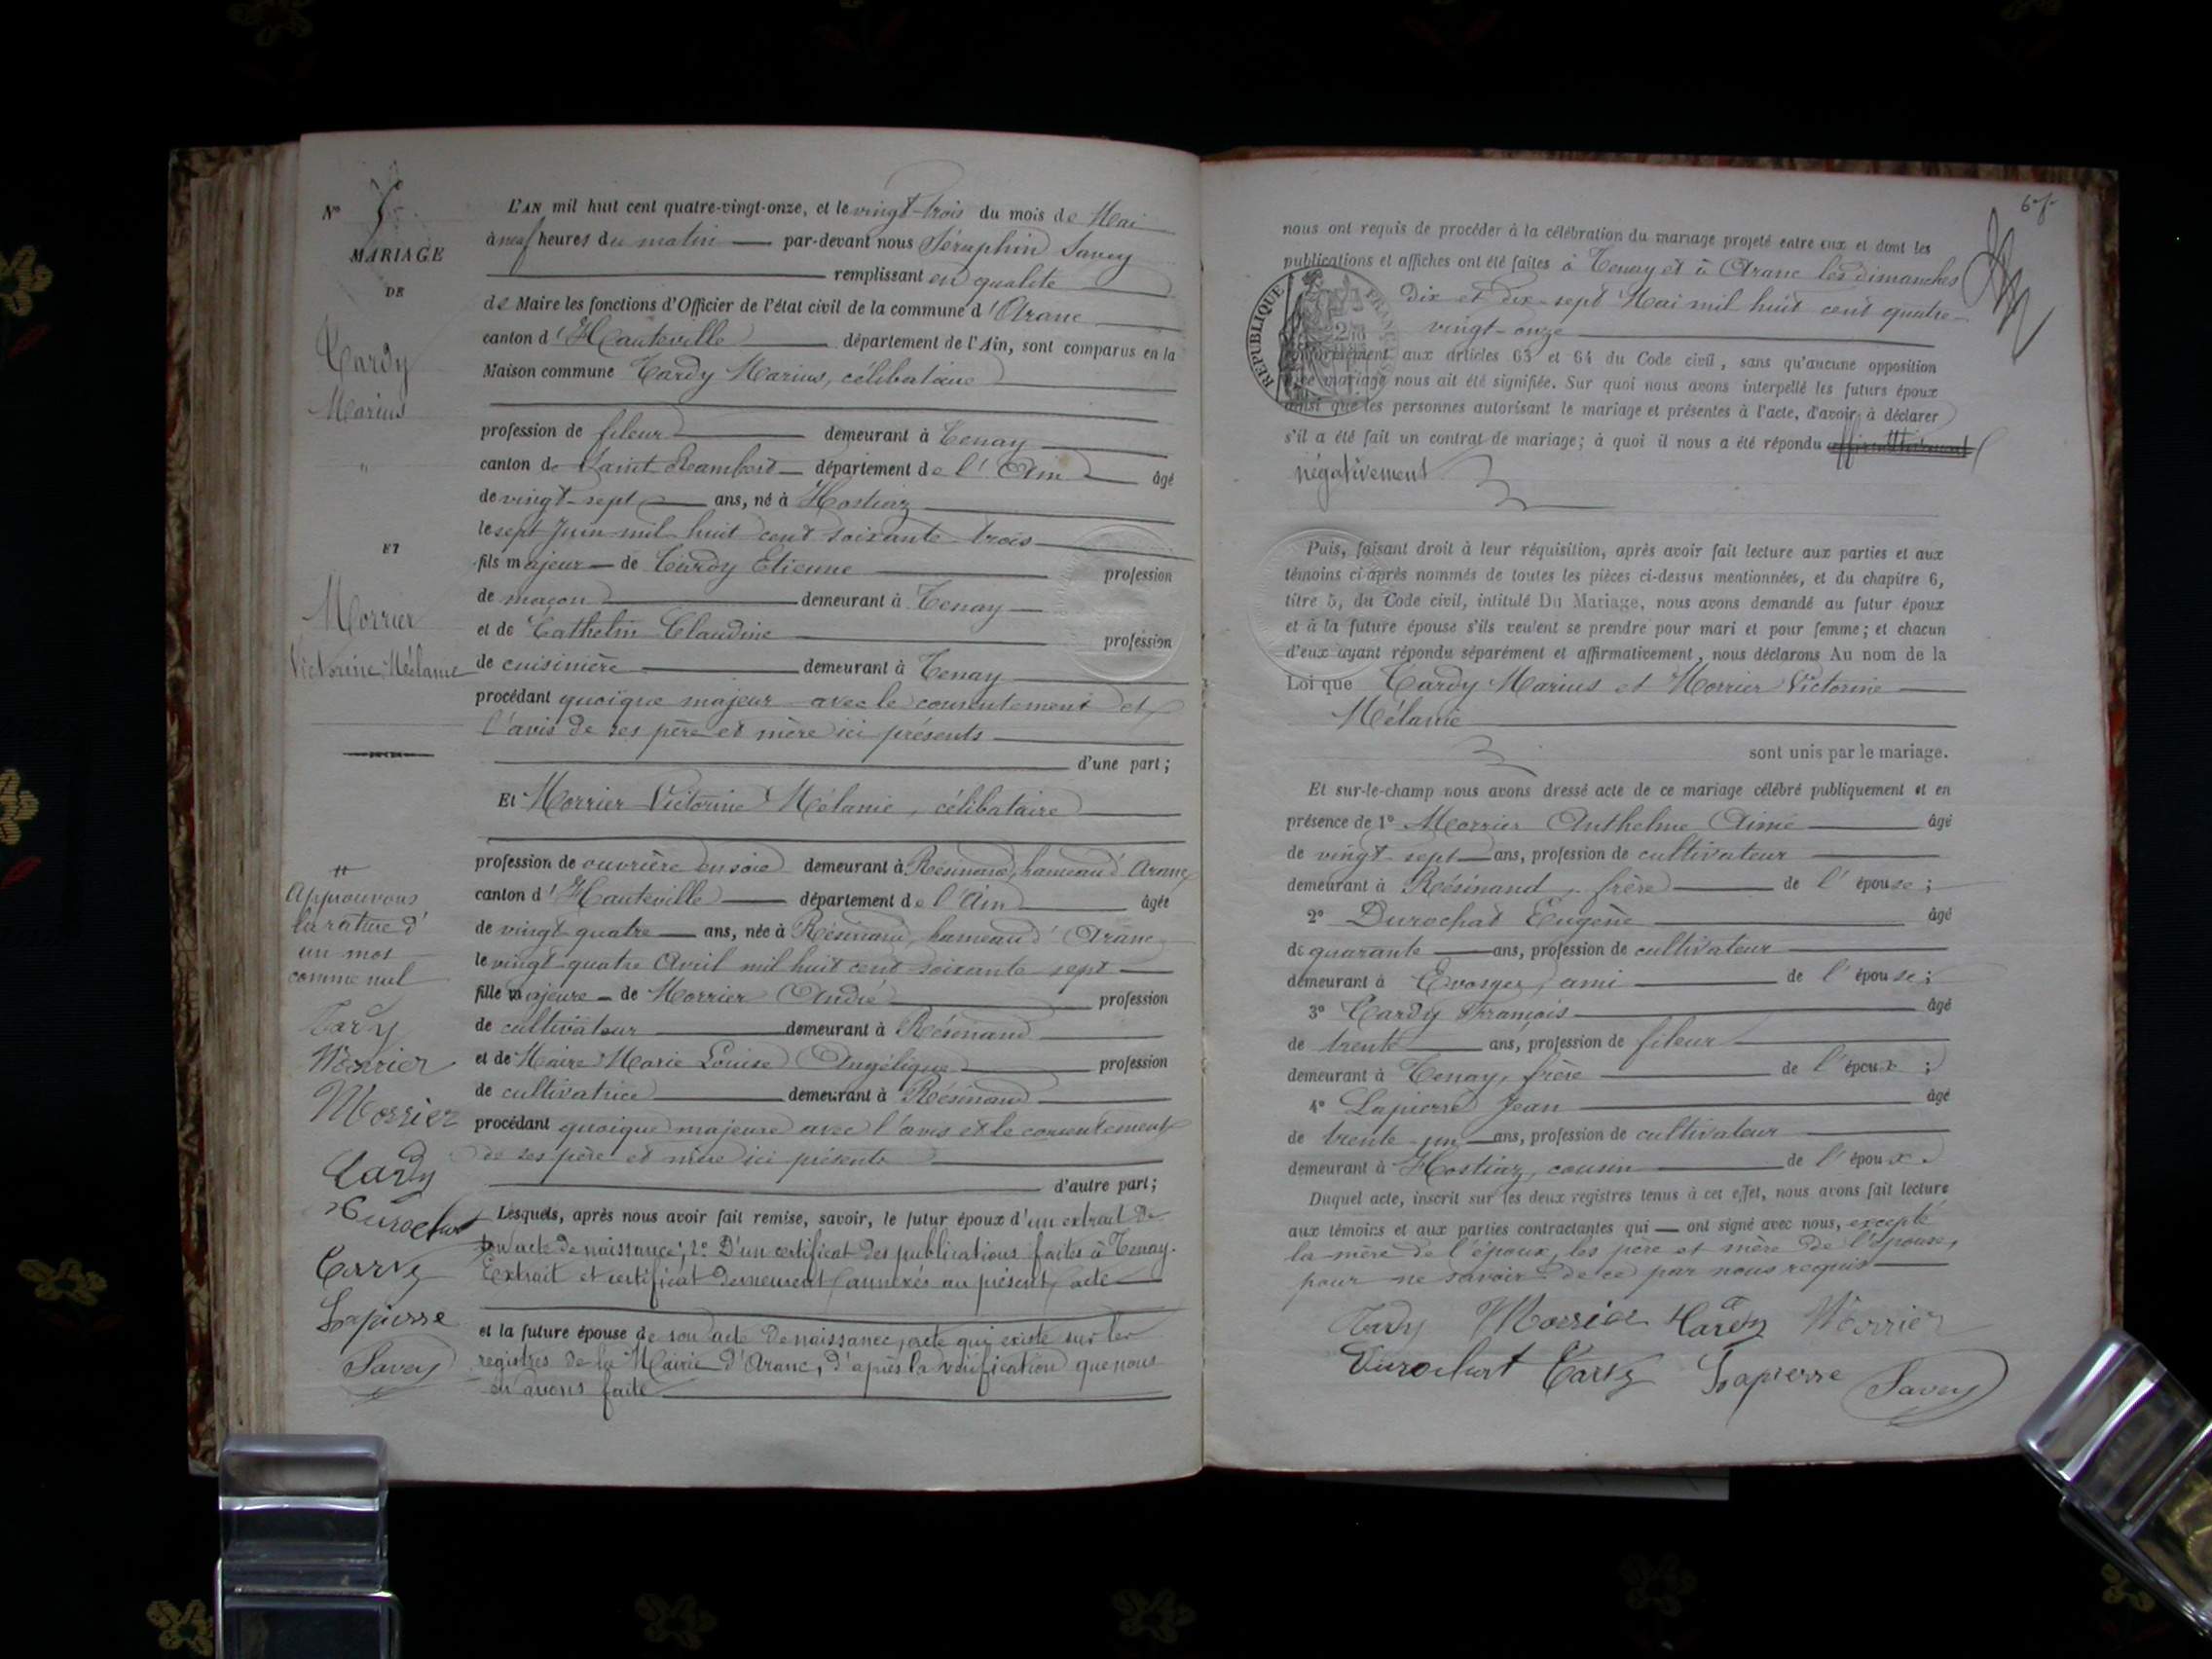 N° 5
MARIAGE
DE
Tardy
Marius
ET
Morrier
Victorine Mélanie
Approuvons
la rature d'
un mot
comme nul
Tardy
Morrier
Morrier
Tardy
Durochat
Tardy
Lapierre
Savey
L'AN mil huit cent quatre-vingt-onze, et le vingt-trois du mois de Mai
à neuf heures du matin par-devant nous Séraphin Savey
remplissant en qualité
de Maire les fonctions d'Officier de l'état civil de la commune d'Aranc
canton d'Hauteville département de l'Ain, sont comparus en la
Maison commune Tardy Marius, célibataire
profession de fileur demeurant à Tenay
canton de Saint Rambert département de l'Ain âgé
de vingt-sept ans, né à Hostiaz
le sept Juin mil huit cent soixante trois
fils majeur de Tardy Etienne profession
de maçon demeurant à Tenay
et de Cathelin Claudine profession
de cuisinière demeurant à Tenay
procédant quoique majeur avec le consentement et
l'avis de ses père et mère ici présents
d'une part;
Et Morrier Victorine Mélanie, célibataire
profession de ouvrière en soie demeurant à Résinand, hameau d'Aranc
canton d'Hauteville département de l'Ain âgée
de vingt quatre ans, née à Résinand, hameau d'Aranc
le vingt-quatre Avril mil huit cent soixante sept
fille majeure de Morrier André profession
de cultivateur demeurant à Résinand
et de Maire Marie Louise Angélique profession
de cultivatrice demeurant à Résinand
procédant quoique majeure avec l'avis et le consentement
de ses père et mère ici présents
d'autre part;
Lesquels, après nous avoir fait remise, savoir, le futur époux d'un extrait de
son acte de naissance; 2° D'un certificat des publications faites à Tenay.
Extrait et certificat demeurent annexés au présent acte
et la future épouse de son acte de naissance, acte qui existe sur les
registres de la Mairie d'Aranc, d'après la vérification que nous
en avons faite
nous ont requis de procéder à la célébration du mariage projeté entre eux et dont les
publications et affiches ont été faites à Tenay et à Aranc les dimanches
dix et dix-sept Mai mil huit cent quatre-
vingt-onze
RÉPUBLIQUE FRANÇAISE
conformément aux articles 63 et 64 du Code civil, sans qu'aucune opposition
à ce mariage nous ait été signifiée. Sur quoi nous avons interpellé les futurs époux
ainsi que les personnes autorisant le mariage et présentes à l'acte, d'avoir à déclarer
s'il a été fait un contrat de mariage; à quoi il nous a été répondu affirmativement
négativement
Puis, faisant droit à leur réquisition, après avoir fait lecture aux parties et aux
témoins ci-après nommés de toutes les pièces ci-dessus mentionnées, et du chapitre 6,
titre 5, du Code civil, intitulé Du Mariage, nous avons demandé au futur époux
et à la future épouse s'ils veulent se prendre pour mari et pour femme; et chacun
d'eux ayant répondu séparément et affirmativement, nous déclarons Au nom de la
Loi que Tardy Marius et Morrier Victorine
Mélanie
sont unis par le mariage.
Et sur-le-champ nous avons dressé acte de ce mariage célébré publiquement et en
présence de 1° Morrier Anthelme Aimé âgé
de vingt sept ans, profession de cultivateur
demeurant à Résinand, frère de l'épouse;
2° Durochat Eugène âgé
de quarante ans, profession de cultivateur
demeurant à Evosges, ami de l'épouse;
3° Tardy François âgé
de trente ans, profession de fileur
demeurant à Tenay, frère de l'époux;
4° Lapierre Jean âgé
de trente-un ans, profession de cultivateur
demeurant à Hostiaz, cousin de l'époux.
Duquel acte, inscrit sur les deux registres tenus à cet effet, nous avons fait lecture
aux témoins et aux parties contractantes qui ont signé avec nous, excepté
la mère de l'époux, les père et mère de l'épouse,
pour ne savoir de ce par nous requis
Tardy Morrier Tardy Morrier
Durochat Tardy Lapierre Savey